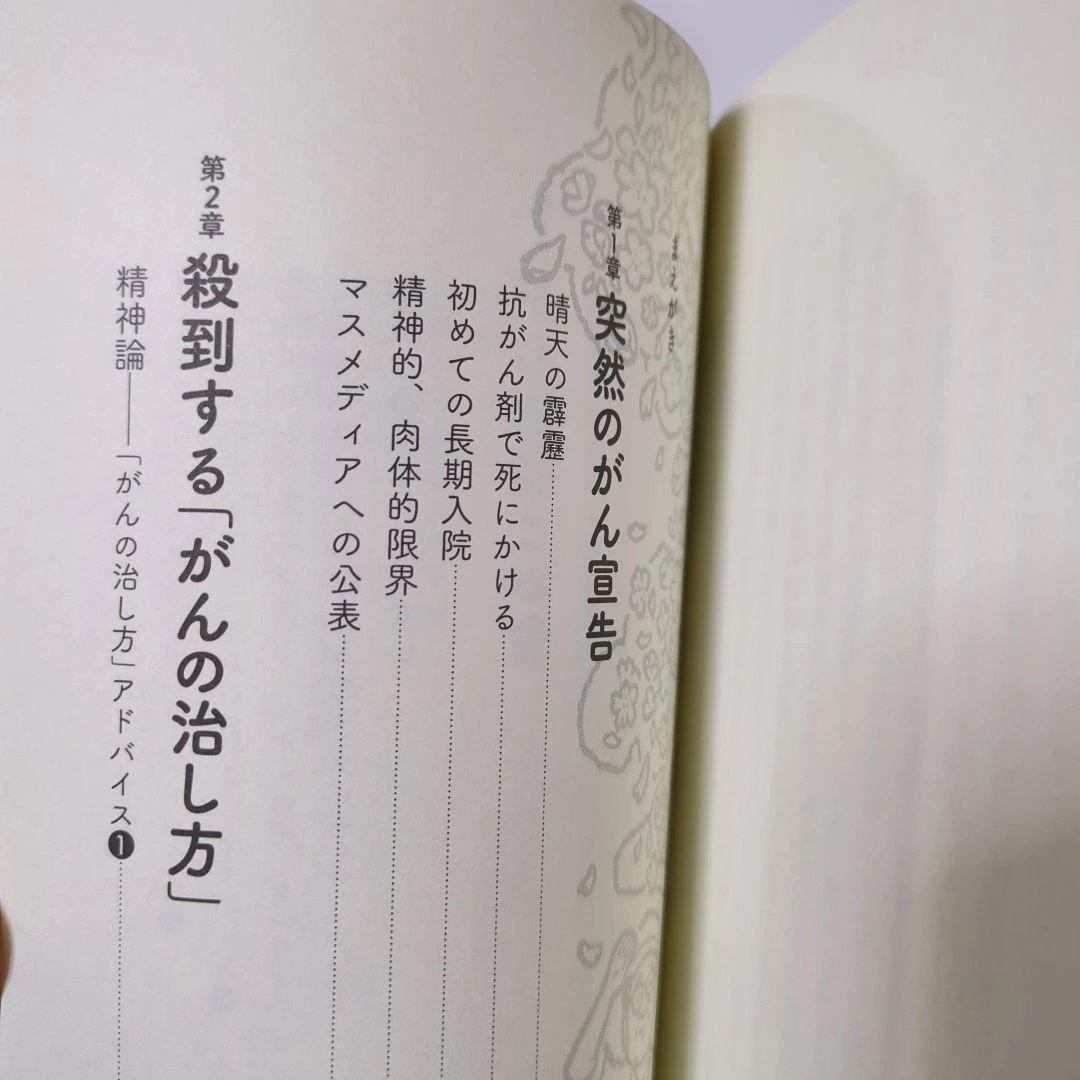 まえがき
第1章 突然のがん宣告
晴天の霹靂
抗がん剤で死にかける
初めての長期入院
精神的、肉体的限界
マスメディアへの公表
第2章 殺到する「がんの治し方」
精神論――「がんの治し方」アドバイス❶